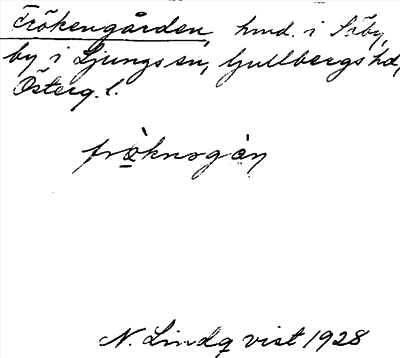 Frökengården, hmd. i Säby,
by i Ljungs sn, Gullbergs hd,
Österg. l.
frò̲knogàn
N. Lindqvist 1928